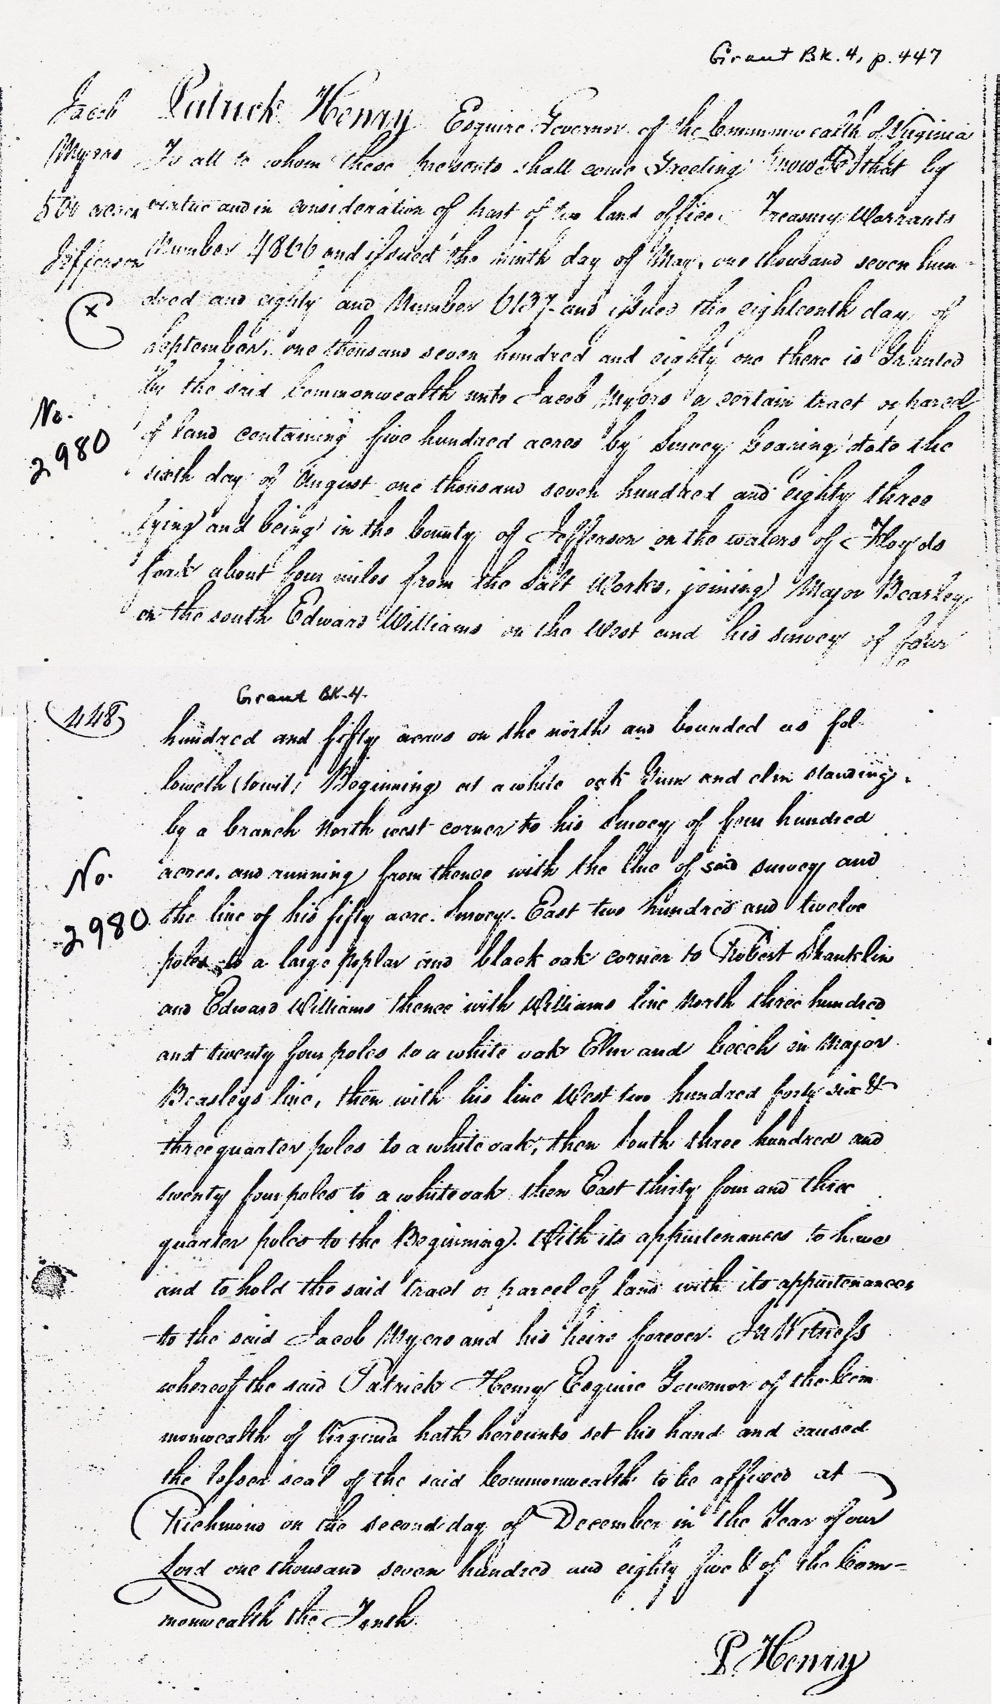 Grant Bk. 4, p. 447
Jacob
Myers
500 acres
Jefferson
No.
2980
Patrick Henry Esquire Governor of the Commonwealth of Virginia
To all to whom these presents shall come Greeting Know Ye that by
virtue and in consideration of part of two land office Treasury Warrants
Number 4866 and issued the ninth day of May, one thousand seven hun-
dred and eighty and Number 6137 and issued the eighteenth day of
September, one thousand seven hundred and eighty one there is Granted
by the said Commonwealth unto Jacob Myers a certain tract or parcel
of land containing five hundred acres by Survey bearing date the
sixth day of August one thousand seven hundred and eighty three
lying and being in the County of Jefferson on the waters of Floyds
fork about four miles from the Salt Works, joining Major Beasley
on the south Edward Williams on the West and his survey of four
448
Grant Bk-4.
No.
2980
hundred and fifty acres on the north and bounded as fol
loweth (towit) Beginning at a white oak Gum and elm standing
by a branch North west corner to his Survey of four hundred
acres, and running from thence with the line of said survey and
the line of his fifty acre Survey. East two hundred and twelve
poles to a large poplar and black oak corner to Robert Shanklin
and Edward Williams thence with Williams line North three hundred
and twenty four poles to a white oak Elm and beech in Major
Beasleys line, then with his line West two hundred forty six &
three quarter poles to a white oak, then South three hundred and
twenty four poles to a white oak then East thirty four and three
quarter poles to the Beginning. With its appurtenances to have
and to hold the said tract or parcel of land with its appurtenances
to the said Jacob Myers and his heirs forever. In Witness
whereof the said Patrick Henry Esquire Governor of the Com
monwealth of Virginia hath hereunto set his hand and caused
the lesser seal of the said Commonwealth to be affixed at
Richmond on the second day of December in the Year of our
Lord one thousand seven hundred and eighty five & of the Com-
monwealth the Tenth.
P. Henry